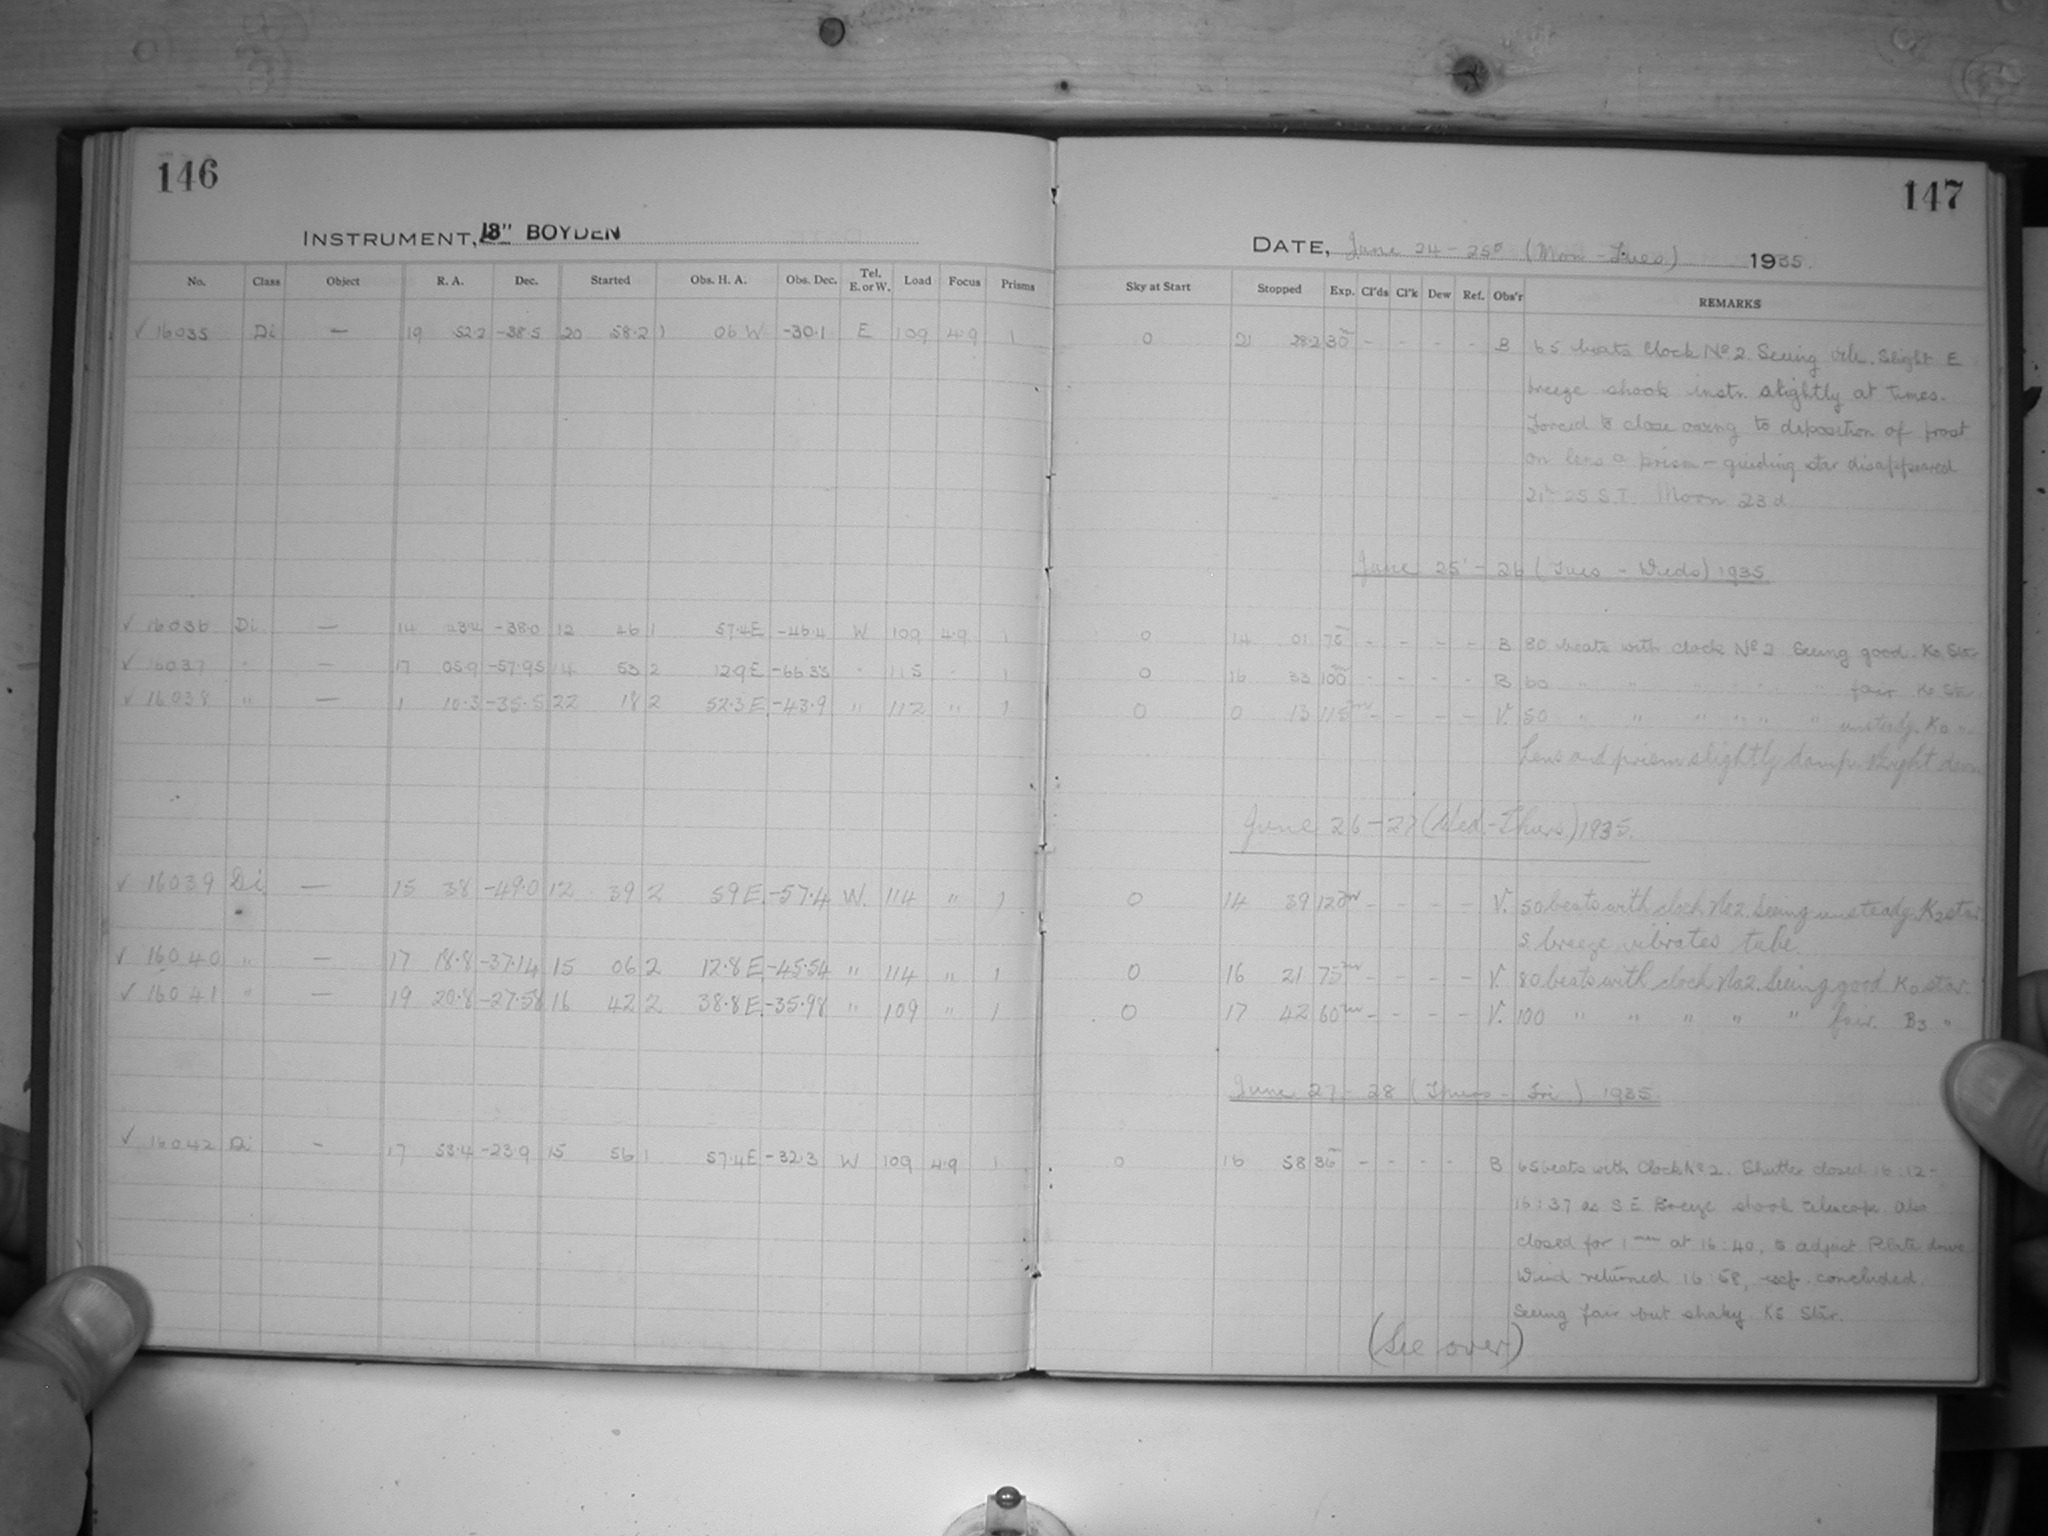 146
147
INSTRUMENT, 13" BOYDEN
DATE, June 24 - 25 (Mon - Tues) 1935.
No. Class Object R. A. Dec. Started Obs. H. A. Obs. Dec. Tel. E. or W. Load Focus Prisms Sky at Start Stopped Exp. Cl'ds Cl'k Dew Ref. Obs'r REMARKS
✓ 16035 Di — 19 52.2 -38.5 20 58.2 1 06 W -30.1 E 109 4.9 1 0 21 28.2 30m - - - - B 65 beats Clock No 2. Seeing Slight E
breeze shook instr. slightly at times.
Forced to close owing to deposition of frost
on lens & prism - guiding star disappeared
21h 25 S.T. Moon 23 d.
June 25 - 26 (Tues - Weds) 1935
✓ 16036 Di — 14 43.4 -38.0 12 46 1 57.4E -46.4 W 109 4.9 1 0 14 01 75m - - - - B 80 beats with clock No 2 Seeing good. K0 Star
✓ 16037 " — 17 05.9 -57.95 14 53 2 12.9E -66.35 " 115 " 1 0 16 33 100m - - - - B 60 " " " " " fair K0 Star
✓ 16038 " — 1 10.3 -35.5 22 18 2 52.3E -43.9 " 112 " 1 0 0 13 115m - - - - V. 50 " " " " " " unsteady. K0 "
Lens and prism slightly damp. Slight dew
June 26 - 27 (Wed. - Thurs.) 1935.
✓ 16039 Di — 15 38 -49.0 12 39 2 59 E. -57.4 W. 114 " 1 0 14 39 120m - - - - V. 50 beats with clock No 2. Seeing unsteady. K2 star.
S. breeze vibrates tube.
✓ 16040 " — 17 18.8 -37.14 15 06 2 12.8E -45.54 " 114 " 1 0 16 21 75m - - - - V. 80 beats with clock No 2. Seeing good K0 star.
✓ 16041 " — 19 20.8 -27.58 16 42 2 38.8E -35.98 " 109 " 1 0 17 42 60m - - - - V. 100 " " " " " fair. B3 "
June 27 - 28 (Thurs - Fri) 1935.
✓ 16042 Di - 17 53.4 -23.9 15 56 1 57.4E -32.3 W 109 4.9 1 0 16 58 36m - - - - B 65 beats with Clock No 2. Shutter closed 16:12-
16:37 as S E Breeze shook telescope also
closed for 1 min at 16:40, to adjust Plate
Wind returned 16:58, exp. concluded.
Seeing fair but shaky K5 Star.
(See over)